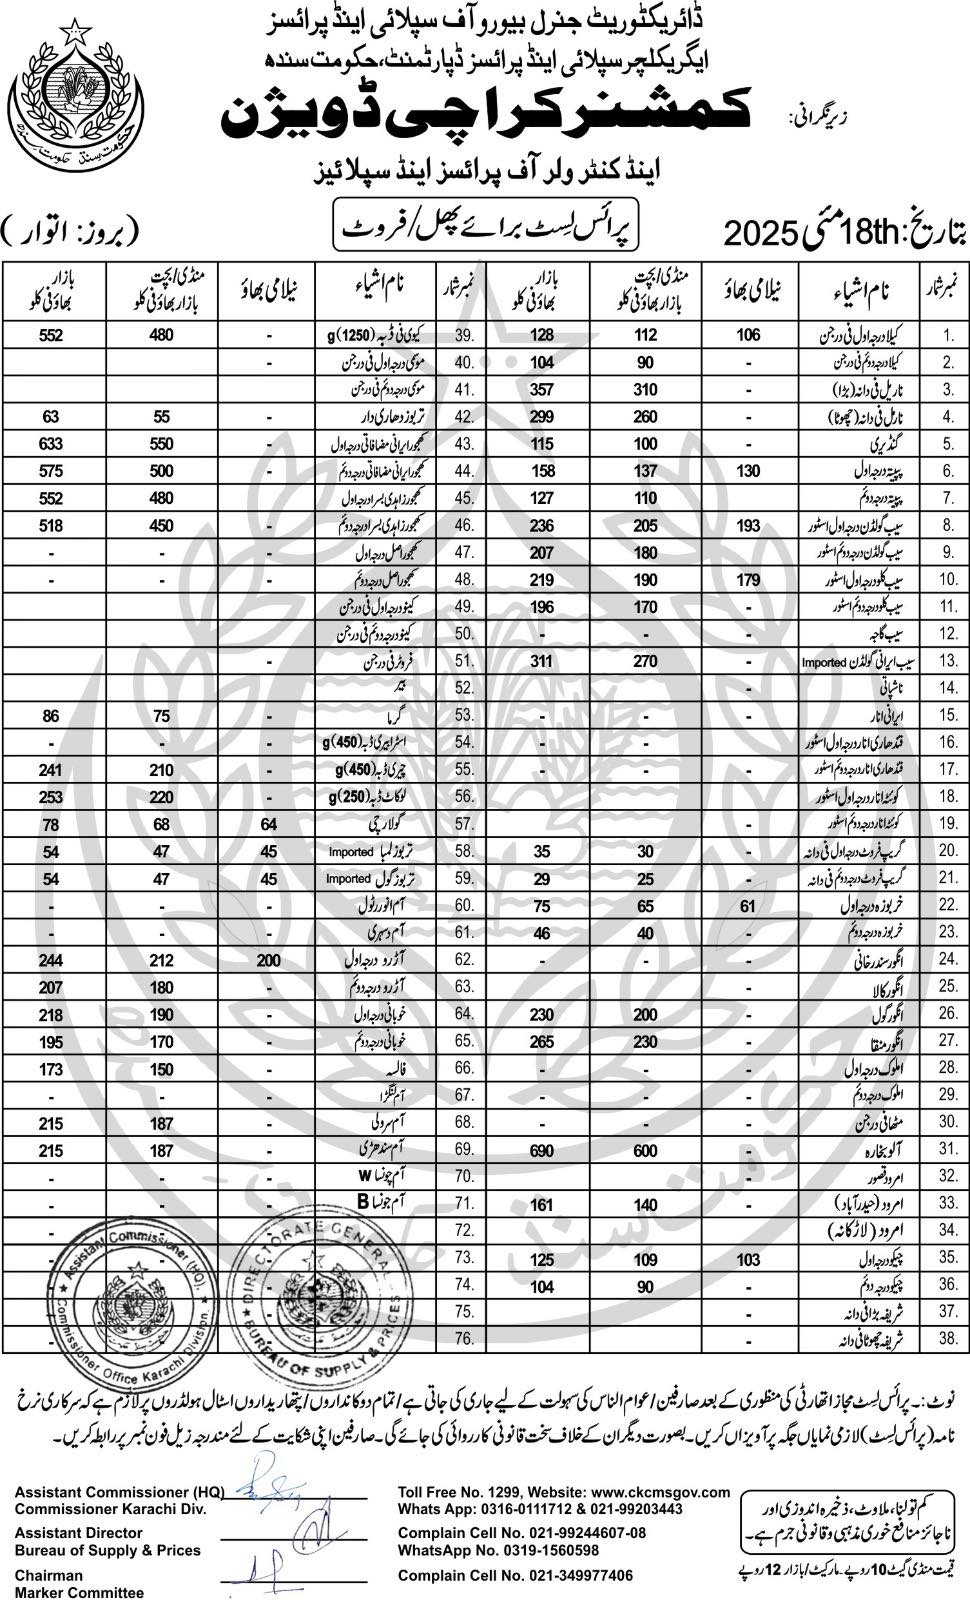 ڈائریکٹوریٹ جنرل بیورو آف سپلائی اینڈ پرائسز
ایگریکلچر سپلائی اینڈ پرائسز ڈپارٹمنٹ، حکومت سندھ
زیر نگرانی: کمشنر کراچی ڈویژن
اینڈ کنٹرولر آف پرائسز اینڈ سپلائیز
بتاریخ: 18th مئی 2025 پرائس لسٹ برائے پھل/فروٹ (بروز: اتوار)
نمبر شمار نام اشیاء نیلامی بھاؤ منڈی/بچت بازار بھاؤ فی کلو بازار بھاؤ فی کلو نمبر شمار نام اشیاء نیلامی بھاؤ منڈی/بچت بازار بھاؤ فی کلو بازار بھاؤ فی کلو
1. کیلا درجہ اول فی درجن 106 112 128 39. کیوی فی ڈبہ (1250)g - 480 552
2. کیلا درجہ دوئم فی درجن - 90 104 40. موسمی درجہ اول فی درجن -
3. ناریل فی دانہ (بڑا) 310 357 41. موسمی درجہ دوئم فی درجن
4. ناریل فی دانہ (چھوٹا) - 260 299 42. تربوز دھاری دار - 55 63
5. گنڈیری - 100 115 43. کھجور ایرانی مضافاتی درجہ اول - 550 633
6. پپیتہ درجہ اول 130 137 158 44. کھجور ایرانی مضافاتی درجہ دوئم - 500 575
7. پپیتہ درجہ دوئم - 110 127 45. کھجور زاہدی بسرا درجہ اول - 480 552
8. سیب گولڈن درجہ اول اسٹور 193 205 236 46. کھجور زاہدی بسرا درجہ دوئم - 450 518
9. سیب گولڈن درجہ دوئم اسٹور - 180 207 47. کھجور اصل درجہ اول - - -
10. سیب کلو درجہ اول اسٹور 179 190 219 48. کھجور اصل درجہ دوئم - - -
11. سیب کلو درجہ دوئم اسٹور - 170 196 49. کینو درجہ اول فی درجن -
12. سیب گاجہ - - - 50. کینو درجہ دوئم فی درجن
13. سیب ایرانی گولڈن Imported - 270 311 51. فروٹر فی درجن -
14. ناشپاتی - 52. بیر
15. ایرانی انار - - - 53. گرما - 75 86
16. قندھاری انار درجہ اول اسٹور - - - 54. اسٹرابیری ڈبہ (450)g - - -
17. قندھاری انار درجہ دوئم اسٹور - - - 55. چیری ڈبہ (450)g - 210 241
18. کوئٹہ انار درجہ اول اسٹور - 56. لوکاٹ ڈبہ (250)g - 220 253
19. کوئٹہ انار درجہ دوئم اسٹور - 57. گولارچی 64 68 78
20. گریپ فروٹ درجہ اول فی دانہ - 30 35 58. تربوز لمبا Imported 45 47 54
21. گریپ فروٹ درجہ دوئم فی دانہ - 25 29 59. تربوز گول Imported 45 47 54
22. خربوزہ درجہ اول 61 65 75 60. آم انور رٹول - - -
23. خربوزہ درجہ دوئم - 40 46 61. آم دسہری - - -
24. انگور سندر خانی - - - 62. آڑرو درجہ اول 200 212 244
25. انگور کالا - 63. آڑرو درجہ دوئم - 180 207
26. انگور گول - 200 230 64. خوبانی درجہ اول - 190 218
27. انگور منقا - 230 265 65. خوبانی درجہ دوئم - 170 195
28. املوک درجہ اول - - - 66. فالسہ - 150 173
29. املوک درجہ دوئم - 67. آم لنگڑا - - -
30. مٹھا فی درجن - - - 68. آم سرولی - 187 215
31. آلو بخارہ - 600 690 69. آم سندھڑی - 187 215
32. امرود قصور - 70. آم چونسا W - - -
33. امرود (حیدرآباد) - 140 161 71. آم چونسا B - - -
34. امرود (لاڑکانہ) 72. - -
35. چیکو درجہ اول 103 109 125 73. - -
36. چیکو درجہ دوئم - 90 104 74. -
37. شریفہ بڑا فی دانہ - 75. -
38. شریفہ چھوٹا فی دانہ - 76. - -
Assistant Commissioner (HQ).
Commissioner Office Karachi Division.
DIRECTORATE GENERAL
BUREAU OF SUPPLY & PRICES
نوٹ:۔ پرائس لسٹ مجاز اتھارٹی کی منظوری کے بعد صارفین/عوام الناس کی سہولت کے لیے جاری کی جاتی ہے/تمام دوکانداروں/پتھاریداروں اسٹال ہولڈروں پر لازم ہے کہ سرکاری نرخ
نامہ (پرائس لسٹ) لازمی نمایاں جگہ پر آویزاں کریں۔ بصورت دیگر ان کے خلاف سخت قانونی کارروائی کی جائے گی۔ صارفین اپنی شکایت کے لئے مندرجہ زیل فون نمبر پر رابطہ کریں۔
Assistant Commissioner (HQ)
Commissioner Karachi Div.
Assistant Director
Bureau of Supply & Prices
Chairman
Marker Committee
Toll Free No. 1299, Website: www.ckcmsgov.com
Whats App: 0316-0111712 & 021-99203443
Complain Cell No. 021-99244607-08
WhatsApp No. 0319-1560598
Complain Cell No. 021-349977406
کم تولنا، ملاوٹ، ذخیرہ اندوزی اور
ناجائز منافع خوری مذہبی و قانونی جرم ہے۔
قیمت منڈی گیٹ 10 روپے۔ مارکیٹ/بازار 12 روپے